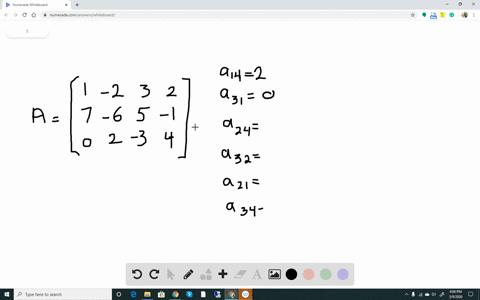 numerade.com/answers/whiteboard/
1
A = [ 1 -2 3 2
7 -6 5 -1
0 2 -3 4 ]
a14 = 2
a31 = 0
a24 =
a32 =
a21 =
a34 -
Type here to search